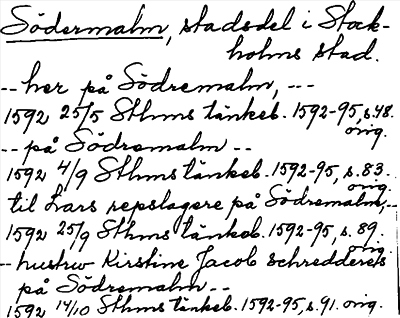 Södermalm, stadsdel i Stock-
holms stad.
-- her på Södremalm, ---
1592 25/5 Sthms tänkeb. 1592-95, s.48.
orig.
-- på Södremalm --
1592 4/9 Sthms tänkeb. 1592-95, s.83.
orig.
til Lars repslagere på Södremalm,--
1592 25/9 Sthms tänkeb. 1592-95, s.89.
orig.
-- hustrw Kirstine Jacob schredderes
på Södremalm --
1592 14/10 Sthms tänkeb. 1592-95, s.91. orig.